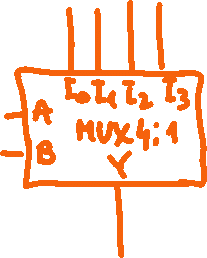 I0 I1 I2 I3
A MUX4:1
B
Y